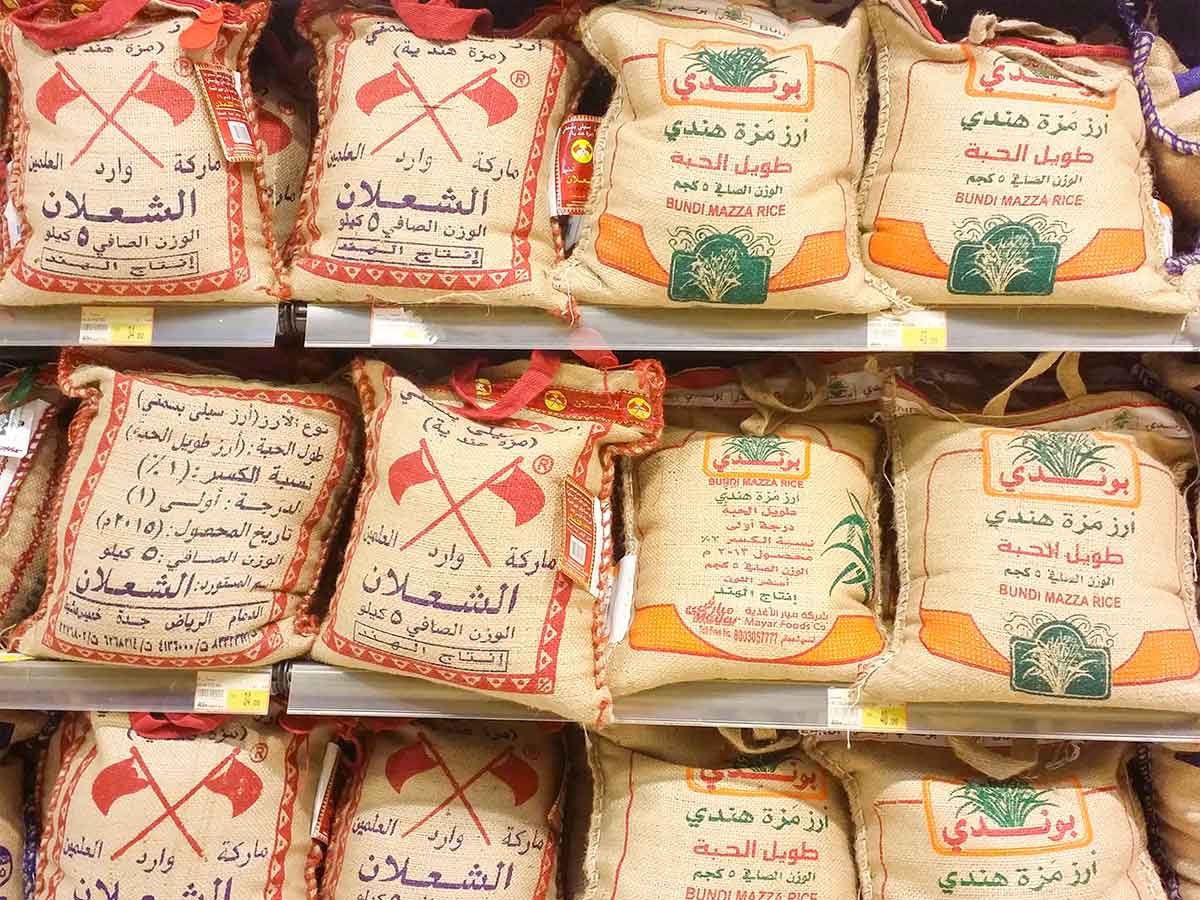 أرز بسمتي
(مزة هندية)
®
ماركة وارد العلمين
الشعلان
الوزن الصافي ٥ كيلو
إنتاج الهند
(مزة هندية)
®
ماركة وارد العلمين
الشعلان
الوزن الصافي ٥ كيلو
إنتاج الهند
بوندي
أرز مَزة هندي
طويل الحبة
الوزن الصافي ٥ كجم
BUNDI MAZZA RICE
بوندي
أرز مَزة هندي
طويل الحبة
الوزن الصافي ٥ كجم
BUNDI MAZZA RICE
نوع الأرز: (أرز سيلي بسمتي)
طول الحبة: (أرز طويل الحبة)
نسبة الكسر: (١٪)
الدرجة: أولى (١)
تاريخ المحصول: (٢٠١٥م)
الوزن الصافي: ٥ كيلو
اسم المستورد: الشعلان
الدمام الرياض جدة
®
ماركة وارد العلمين
الشعلان
الوزن الصافي ٥ كيلو
إنتاج الهند
بوندي
BUNDI MAZZA RICE
أرز مَزة هندي
طويل الحبة
درجة أولى
نسبة الكسر ٢٪
محصول ٢٠١٣ م
الوزن الصافي ٥ كجم
إنتاج الهند
شركة ميار الأغذية
Mayar Foods Co.
8003057777
بوندي
أرز مَزة هندي
طويل الحبة
الوزن الصافي ٥ كجم
BUNDI MAZZA RICE
®
ماركة وارد العلمين
الشعلان
®
ماركة وارد العلمين
الشعلان
أرز مَزة هندي
طويل الحبة
الوزن الصافي ٥ كجم
BUNDI MAZZA RICE
بوندي
أرز مَزة هندي